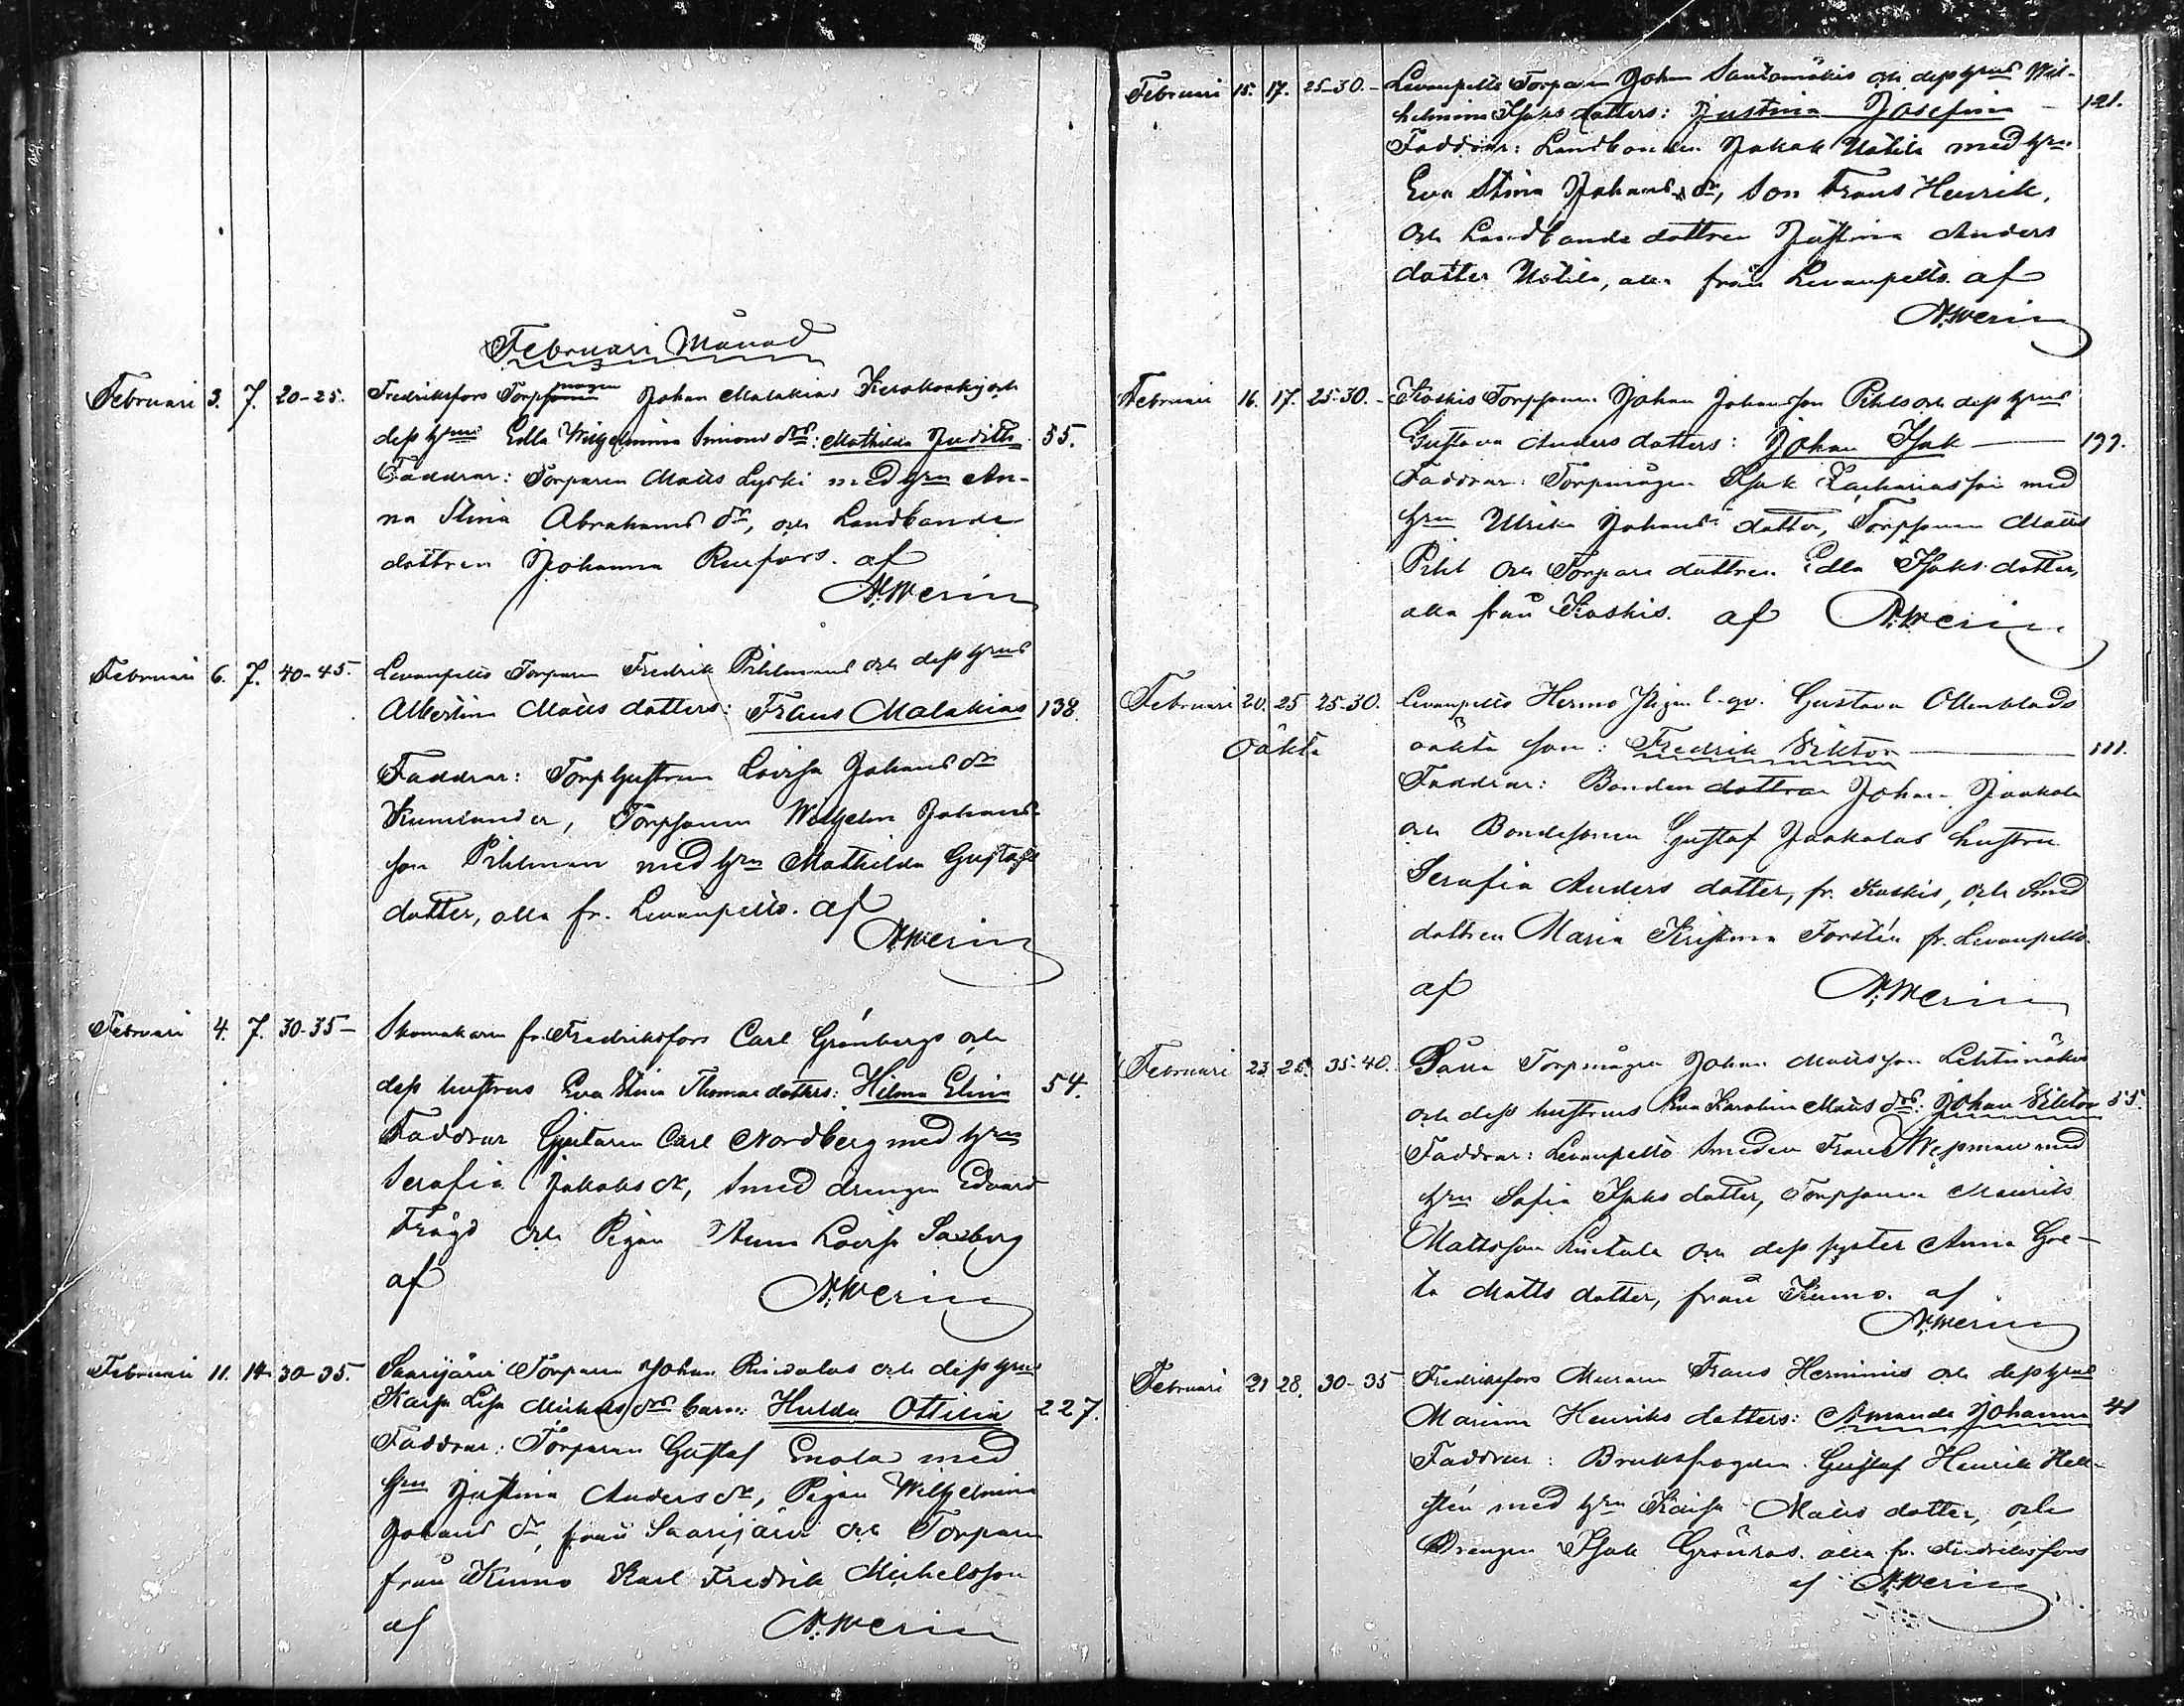 Februari Månad
Februari 3. 7. 20-25. Fredriksfors Torp mågen Johan Malakias Kerokoski och
dess hrus Edla Wilhelmina Simons drs: Mathilda Judith 55.
Faddrar: Torparen Matts Lyski med hrn An-
na Stina Abrahams dr, och Landbonde
dottren Johanna Rufors. af
N. Werin
Februari 6. 7. 40-45. Levanpelto Torparen Fredrik Pihlmans och dess hrus
Albertina Matts dotters: Frans Malakias 138
Faddrar: Torphustrun Lovisa Johans dr
Kumlander, Torpsonen Wilhelm Johans-
son Pihlman med hrn Mathilda Gustafs
dotter, alla fr. Levanpelto. af
N. Werin
Februari 4. 7. 30-35- Skomakaren fr. Fredriksfors Carl Grönbergs och
dess hustrus Eva Stina Thomae dotters: Hilma Elina 54.
Faddrar Gjutaren Carl Nordberg med hrn
Serafia Jakobs dr, Smed drengen Edvard
Fröjd och Pigan Anna Lovisa Saxberg
af N. Werin
Februari 11. 14. 30-35. Saarijärvi Torparen Johan Rindalas och dess hrus
Kajsa Lisa Mickels drs barn: Hulda Ottilia 227.
Faddrar: Torparen Gustaf Enola med
hrn Justina Anders dr, Pigan Wilhelmina
Johans dr, från Saarijärvi och Torparen
från Kumo Karl Fredrik Michelsson
af N. Werin
Februari 15. 17. 25-30.- Levanpelto Torparen Johan Santamäkis och dess hrus Wil-
helmina Isaks dotters: Justina Josefina - 121.
Faddrar: Landbonden Jakob Uotila med hrn
Eva Stina Johans dr, Son Frans Henrik,
och Landbonde dottren Justina Anders
dotter Uotila, alla från Levanpelto. af
N. Werin
Februari 16. 17. 25-30.- Koskis Torpsonen Johan Johansson Pihls och dess hrus
Gustava Anders dotters: Johan Isak 199.
Faddrar: Torpmågen Isak Zachariasson med
hrn Ulrika Johans dotter, Torpsonen Matts
Pihl och Torpare dottren Edla Isaks dotter,
alla från Koskis. af N. Werin
Februari 20. 25 25-30. Levanpelto Hermo Pigan l. qv. Gustava Ollenblads
Oäkta oäkta son: Fredrik Viktor 111.
Faddrar: Bonden dottren Johan Jaakola
och Bondesonen Gustaf Jaakolas hustru
Serafia Anders dotter, fr. Koskis, och Smed
dottren Maria Kristina Forstén fr. Levanpelto.
af N. Werin
Februari 23 25. 35-40. Torpmågen Johan Mattsson Lehtimäkis
och dess hustrus Eva Karolina Matts drs: Johan Viktor 55.
Faddrar: Levanpelto Smeden Frans Wepman med
hrn Sofia Isaks dotter, Torpsonen Maurits
Mattsson och dess syster Anna Gre-
ta Matts dotter, från Kumo. af
N. Werin
Februari 21 28. 30-35 Fredriksfors Muraren Frans Herminis och dess hrus
Marina Henriks dotters: Amanda Johanna 41
Faddrar: Bruksfogden Gustaf Henrik Hell-
stén med hrn Kaisa Matts dotter, och
Drengen Isak Grönroos. alla fr. Fredriksfors
af N. Werin